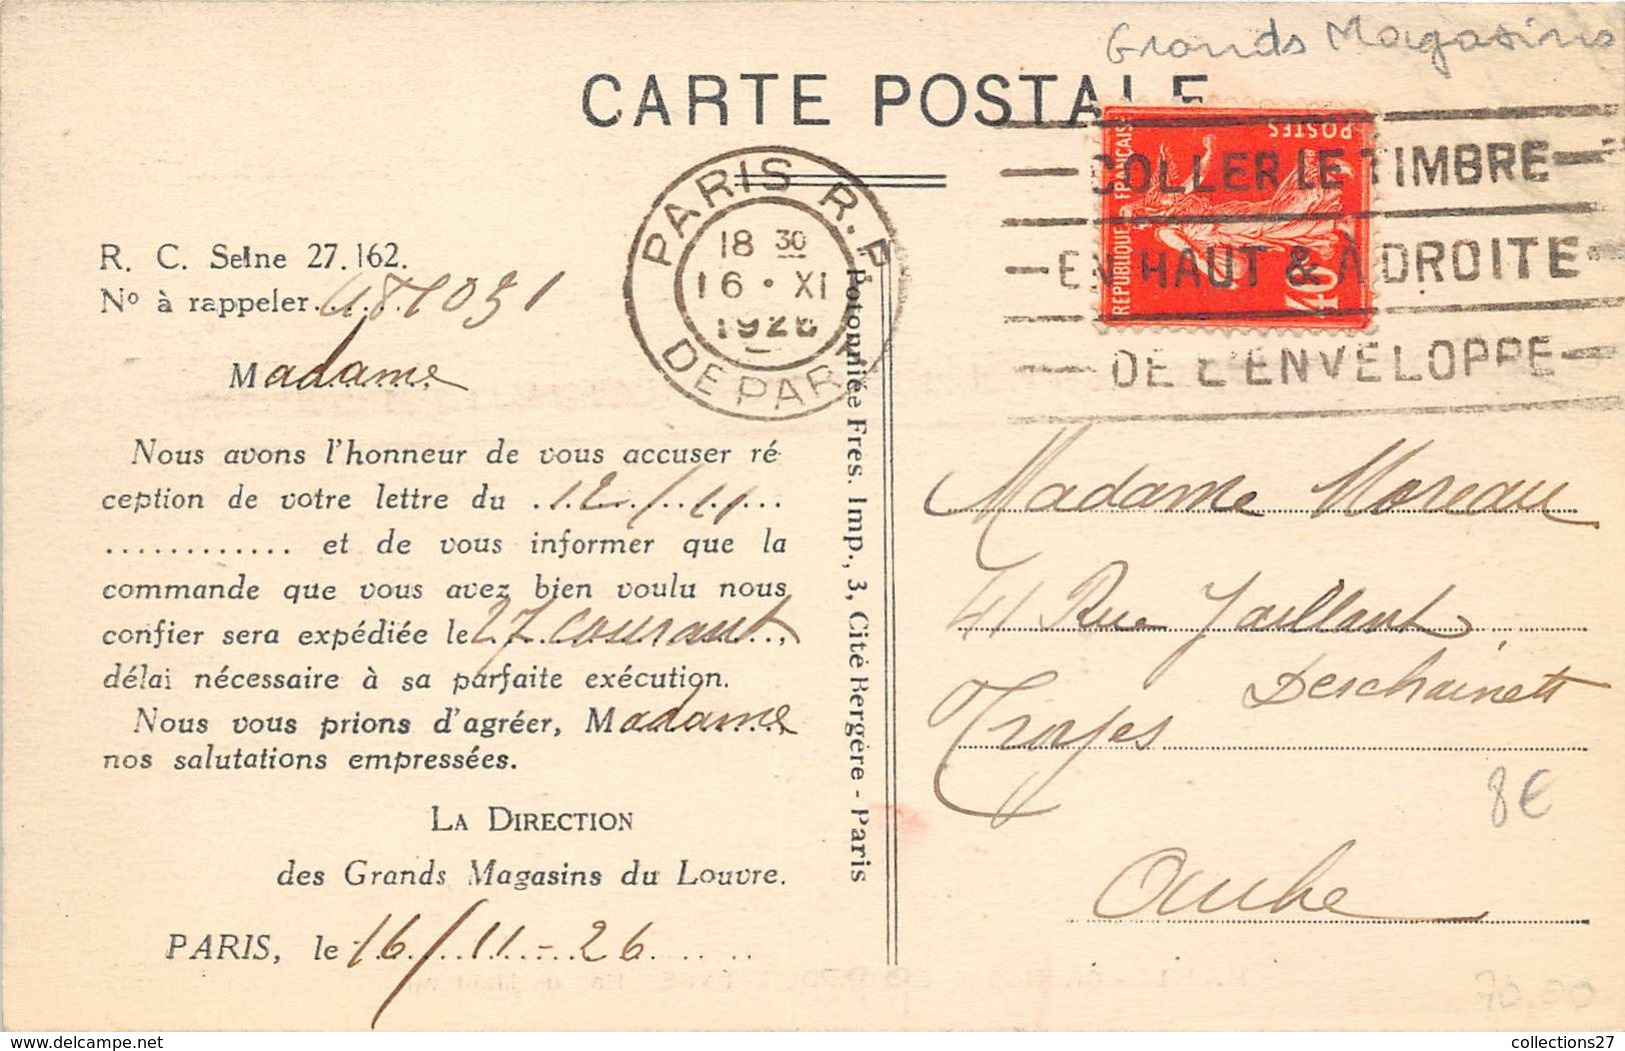 Grands Magasins
CARTE POSTALE
PARIS R.P.
18 30
16 • XI
1926
DEPART
COLLER LE TIMBRE
EN HAUT & À DROITE
DE L'ENVELOPPE
POSTES
REPUBLIQUE FRANÇAISE
40
R. C. Seine 27.162.
No à rappeler
Madame
Nous avons l'honneur de vous accuser ré-
ception de votre lettre du 12/11
et de vous informer que la
commande que vous avez bien voulu nous
confier sera expédiée le 27 courant,
délai nécessaire à sa parfaite exécution.
Nous vous prions d'agréer, Madame
nos salutations empressées.
LA DIRECTION
des Grands Magasins du Louvre.
PARIS, le 16/11-26
Potonniée Fres. Imp., 3, Cité Bergère - Paris
Madame Moreau
41 Rue Jaillant
Deschainets
Troyes
Aube
8€
70.00
collections27